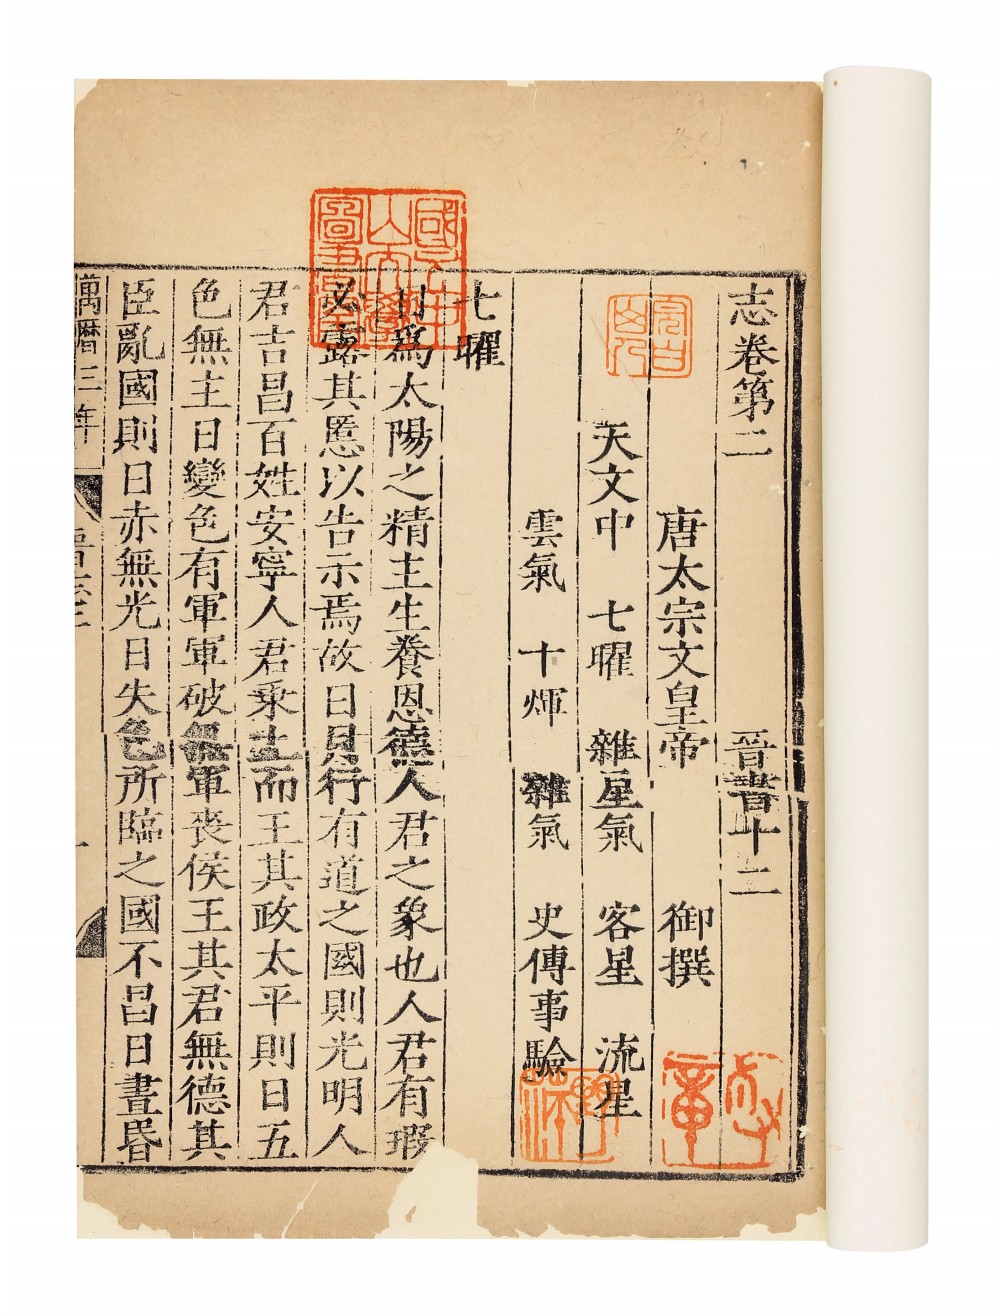 志卷第二 晉書十二
唐太宗文皇帝 御撰
天文中 七曜 雜星氣 客星 流星
雲氣 十煇 雜氣 史傳事驗
七曜
日爲太陽之精主生養恩德人君之象也人君有瑕
必露其慝以告示焉故日月行有道之國則光明人
君吉昌百姓安寧人君乘土而王其政太平則日五
色無主日變色有軍軍破無軍喪侯王其君無德其
臣亂國則日赤無光日失色所臨之國不昌日晝昏
萬曆三年
國立中山大學圖書館